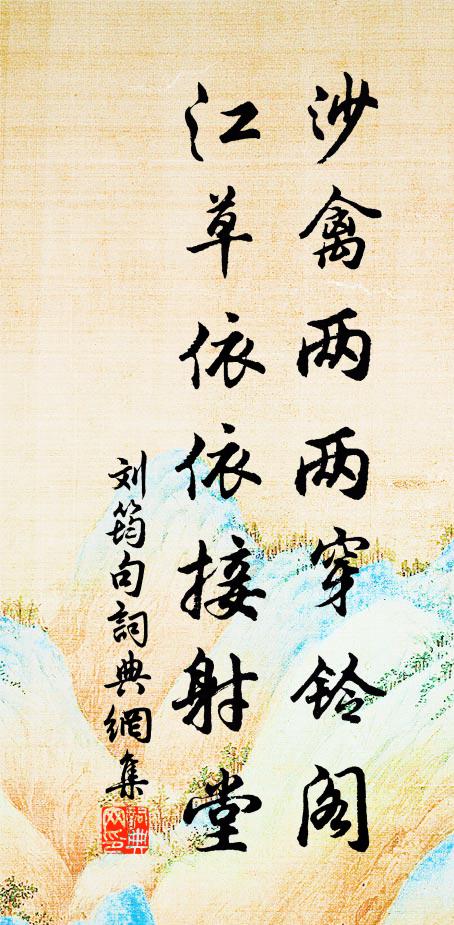 沙禽两两穿铃阁
江草依依接射堂
刘筠句詞典網集
詞典
网印